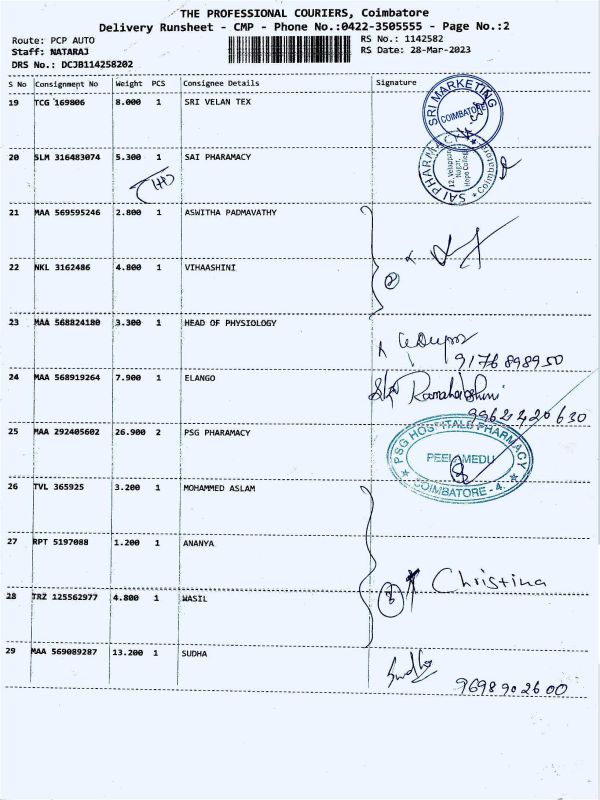 THE PROFESSIONAL COURIERS, Coimbatore
Delivery Runsheet - CMP - Phone No.:0422-3505555 - Page No.:2
Route: PCP AUTO
Staff: NATARAJ
DRS No.: DCJB114258202
RS No.: 1142582
RS Date: 28-Mar-2023
S No Consignment No Weight PCS Consignee Details Signature
19 TCG 169806 8.000 1 SRI VELAN TEX
SRI MARKETING
COIMBATORE
20 SLM 316483074 5.300 1 SAI PHARAMACY
SAI PHARMACY
12, Velappan
Nagar,
Hope College
Coimbatore
21 MAA 569595246 2.800 1 ASWITHA PADMAVATHY
22 NKL 3162486 4.800 1 VIHAASHINI
2
23 MAA 568824180 3.300 1 HEAD OF PHYSIOLOGY
9176898950
24 MAA 568919264 7.900 1 ELANGO
9962420630
25 MAA 292405602 26.900 2 PSG PHARAMACY
PSG HOSPITALS PHARMACY
PEELAMEDU
COIMBATORE - 4.
26 TVL 365925 3.200 1 MOHAMMED ASLAM
27 RPT 5197088 1.200 1 ANANYA
Christina
28 TRZ 125562977 4.800 1 WASIL
3
29 MAA 569089287 13.200 1 SUDHA
Sudha
9698902600